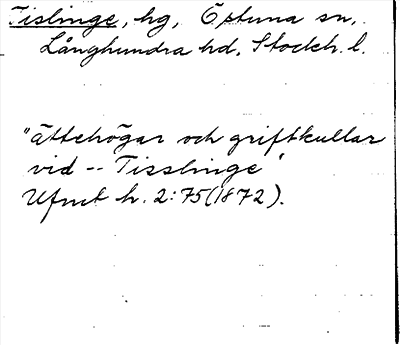 Tislinge, hg, Östuna sn,
Långhundra hd, Stockh. l.
"ättehögar och griftkullar
vid -- Tisslinge"
Ufmt h. 2:75 (1872).